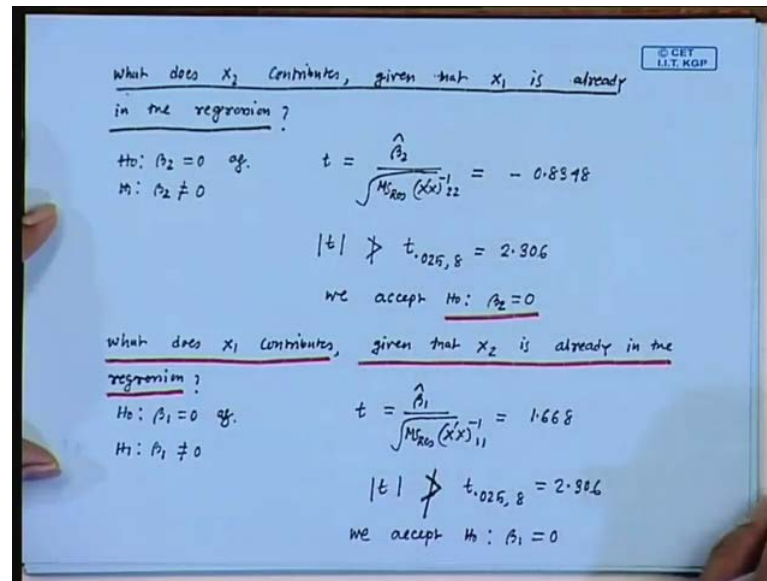 © CET
I.I.T. KGP
What does X₂ Contributes, given that X₁ is already
in the regression ?
H₀: β₂ = 0 ag.
H₁: β₂ ≠ 0
t = β̂₂ / √(MS_Res (X'X)⁻¹₂₂) = - 0.8348
|t| ≯ t.₀₂₅,₈ = 2.306
we accept H₀: β₂ = 0
What does X₁ Contributes, given that X₂ is already in the
regression ?
H₀: β₁ = 0 ag.
H₁: β₁ ≠ 0
t = β̂₁ / √(MS_Res (X'X)⁻¹₁₁) = 1.668
|t| ≯ t.₀₂₅,₈ = 2.306
we accept H₀: β₁ = 0